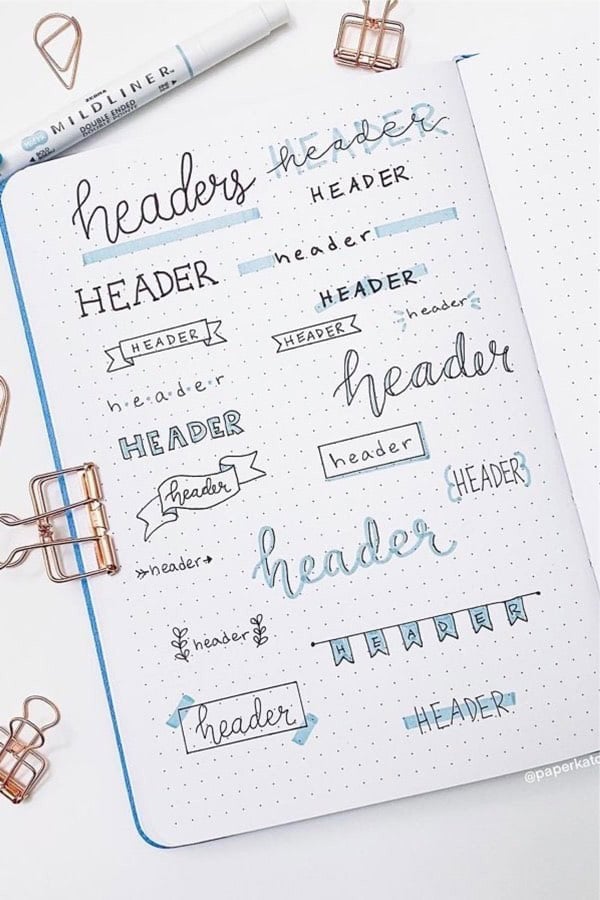 ZEBRA
MILDLINER™
DOUBLE ENDED
headers
HEADER
header
HEADER
header
HEADER
HEADER
header
HEADER
HEADER
header
header
HEADER
header
header
HEADER
header
header
header
HEADER
header
HEADER
@paperkatc